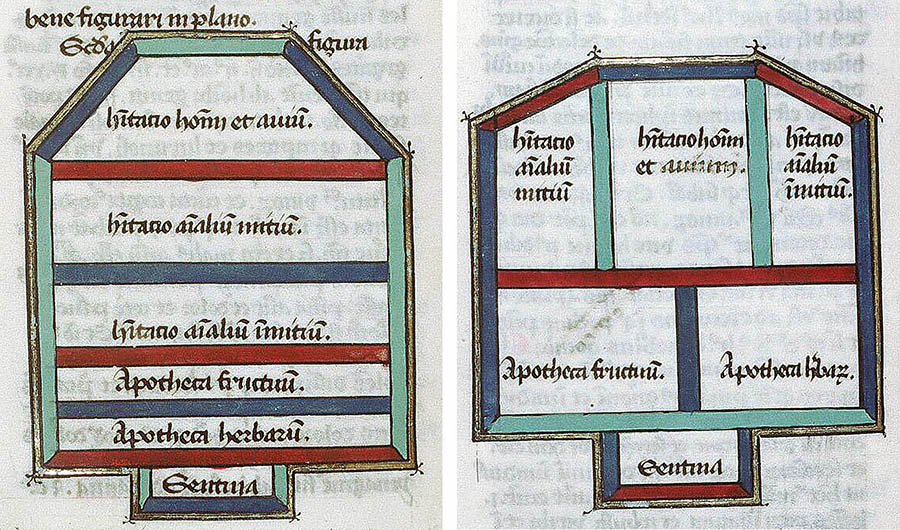 bene figurari in plano.
Secda figura
h̄itacio hoīm et aviū.
h̄itacio aīaliū mitiū.
h̄itacio aīaliū īmitiū.
Apotheca fructuū.
Apotheca herbarū.
Sentina
h̄itacio
aīaliū
mitiū
h̄itacio hoīm
et aviūm.
h̄itacio
aīaliū
īmitiū.
Apotheca fructuū.
Apotheca h̄baꝝ.
Sentina